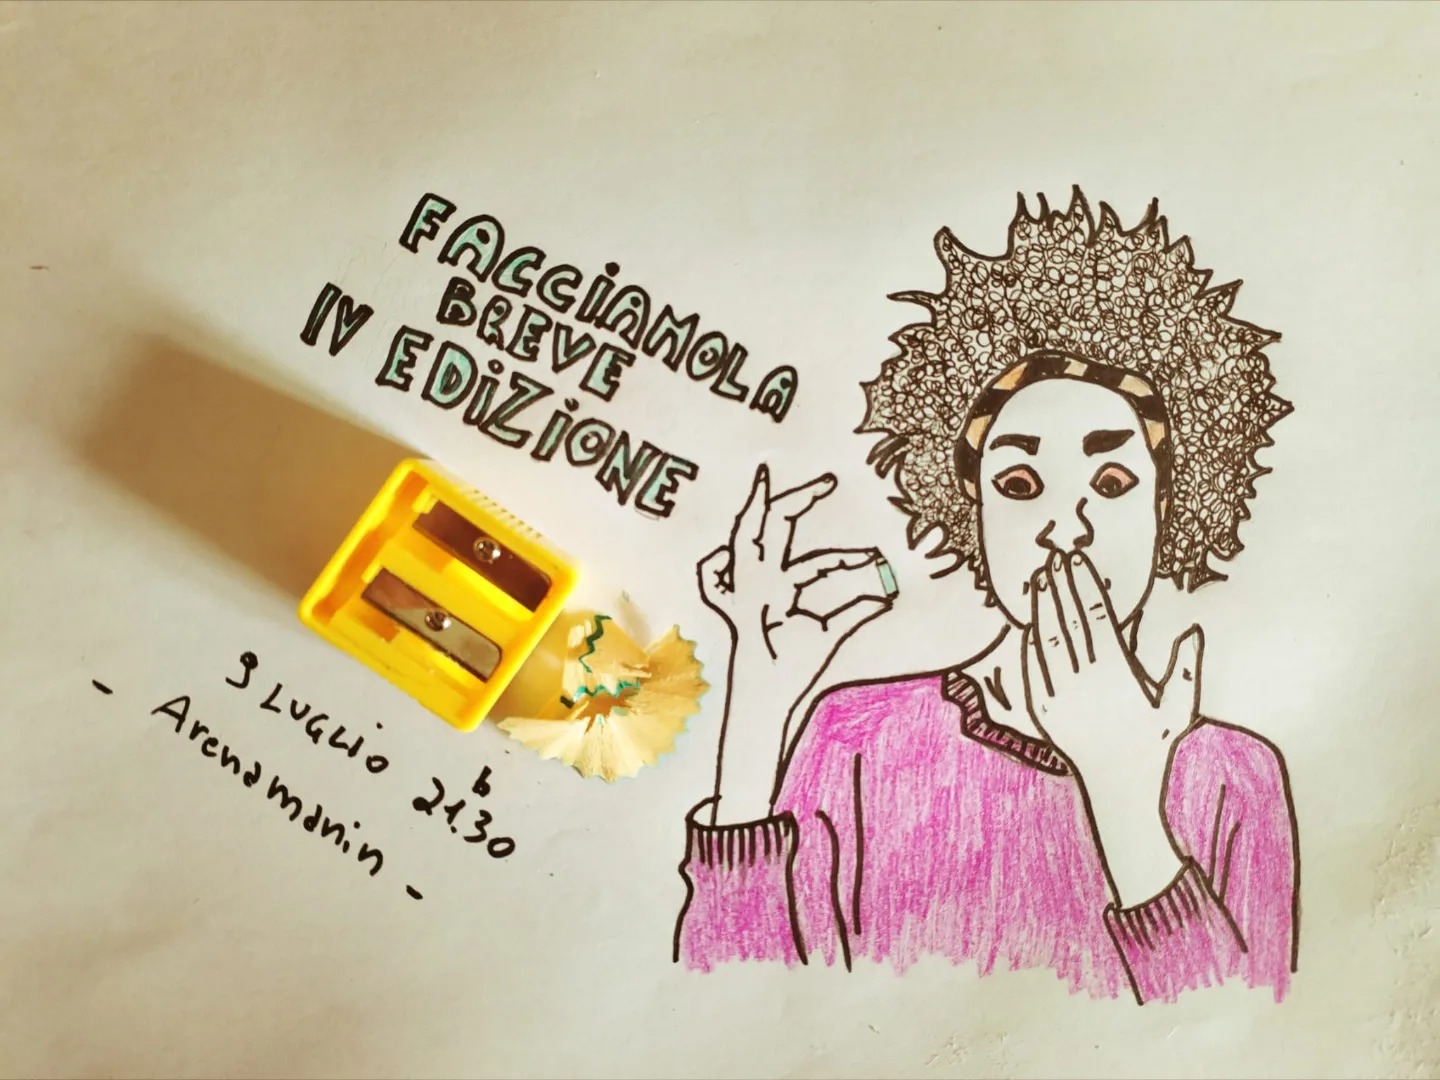 FACCiAMOLA
BREVE
IV EDiZiONE
9 LUGLio 21.30 h
- Arenamanin -